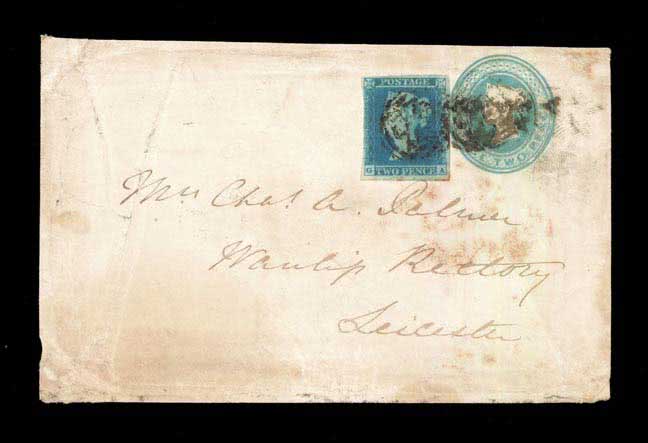 POSTAGE
G TWO PENCE A
TWO PENCE
Mrs Chas. A. Palmer
Wanlip Rectory
Leicester